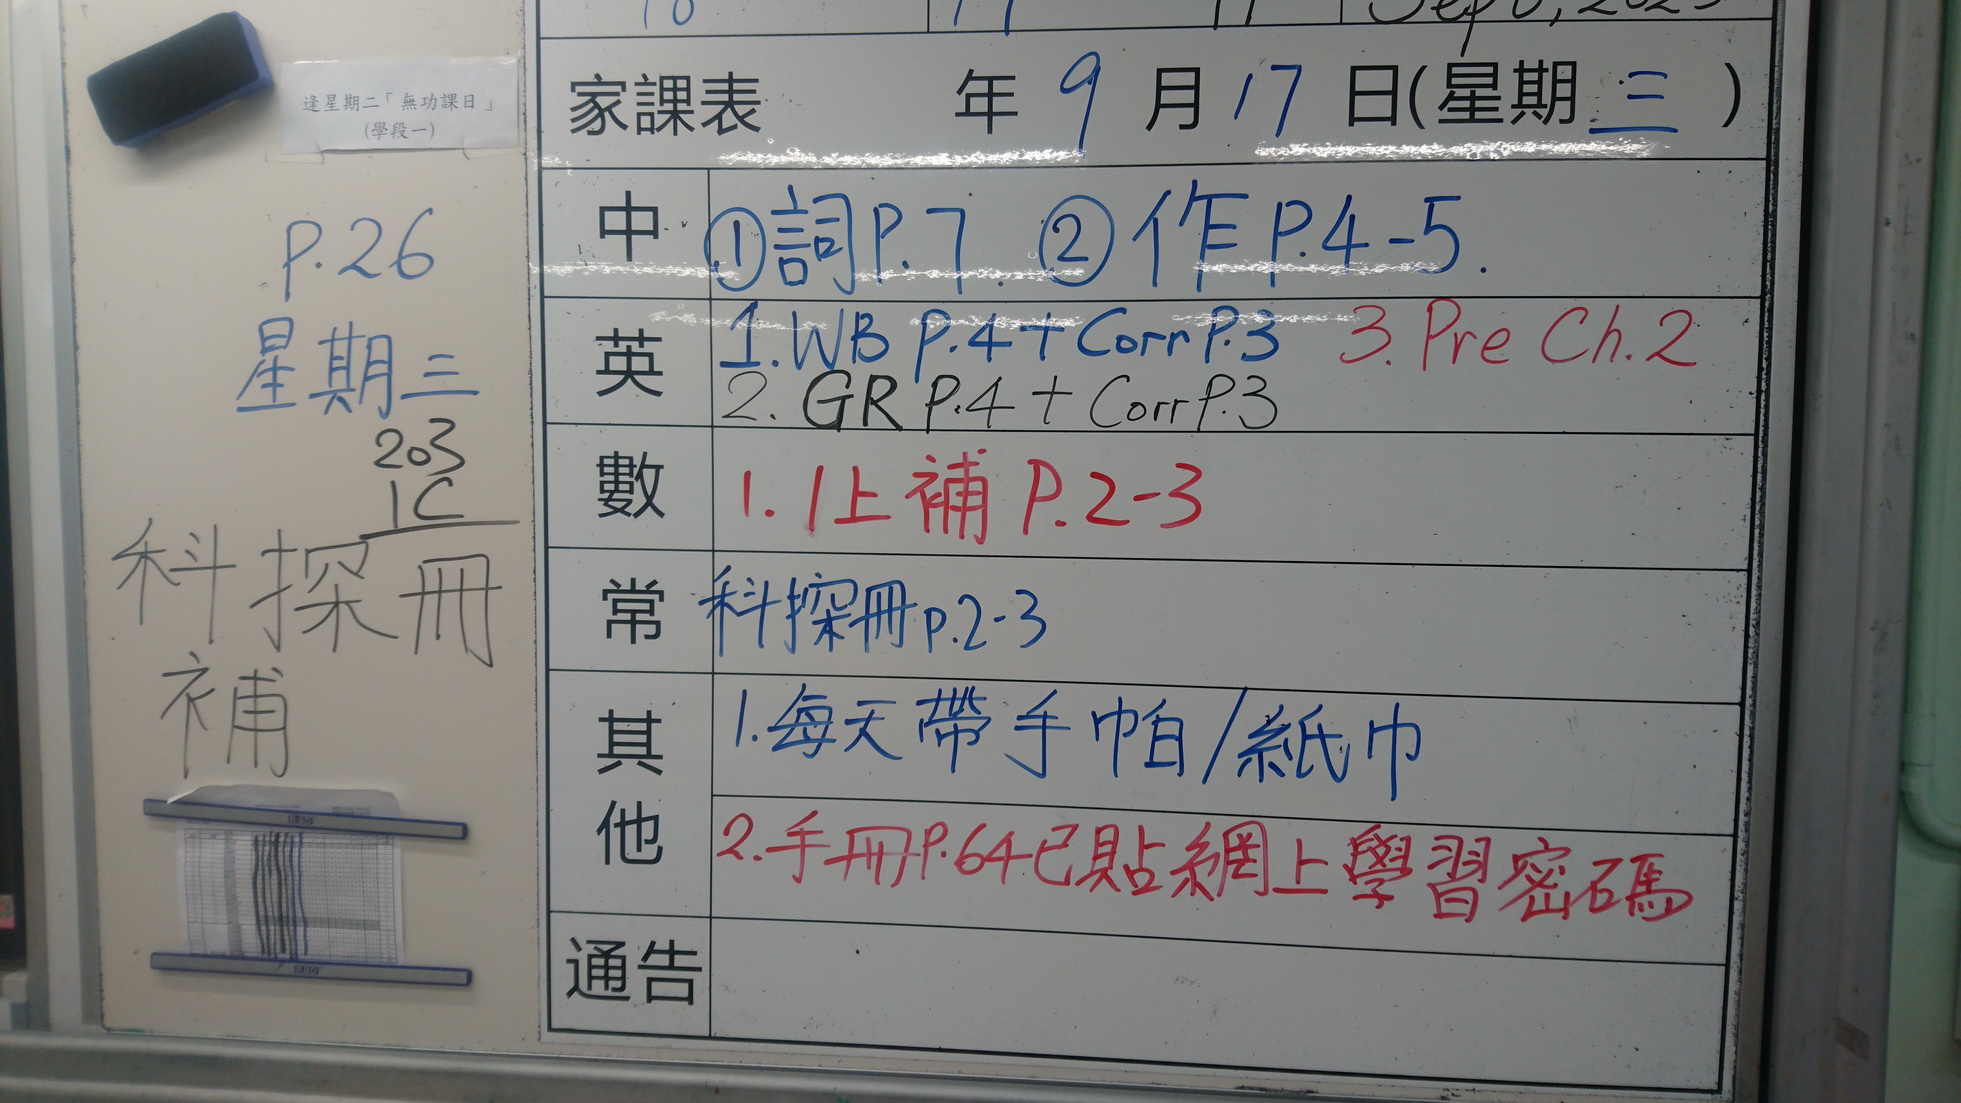 逢星期二「無功課日」
(學段一)
P.26
星期三
203
1C
科探冊
補
家課表 年 9 月 17 日(星期 三 )
中 ①詞P.7. ②作P.4-5.
英 1.WB P.4+Corr P.3 3. Pre Ch.2
2. GR P.4+Corr P.3
數 1. 1上補 P.2-3
常 科探冊 p.2-3
其他 1.每天帶手帕/紙巾
2.手冊P.64已貼網上學習密碼
通告